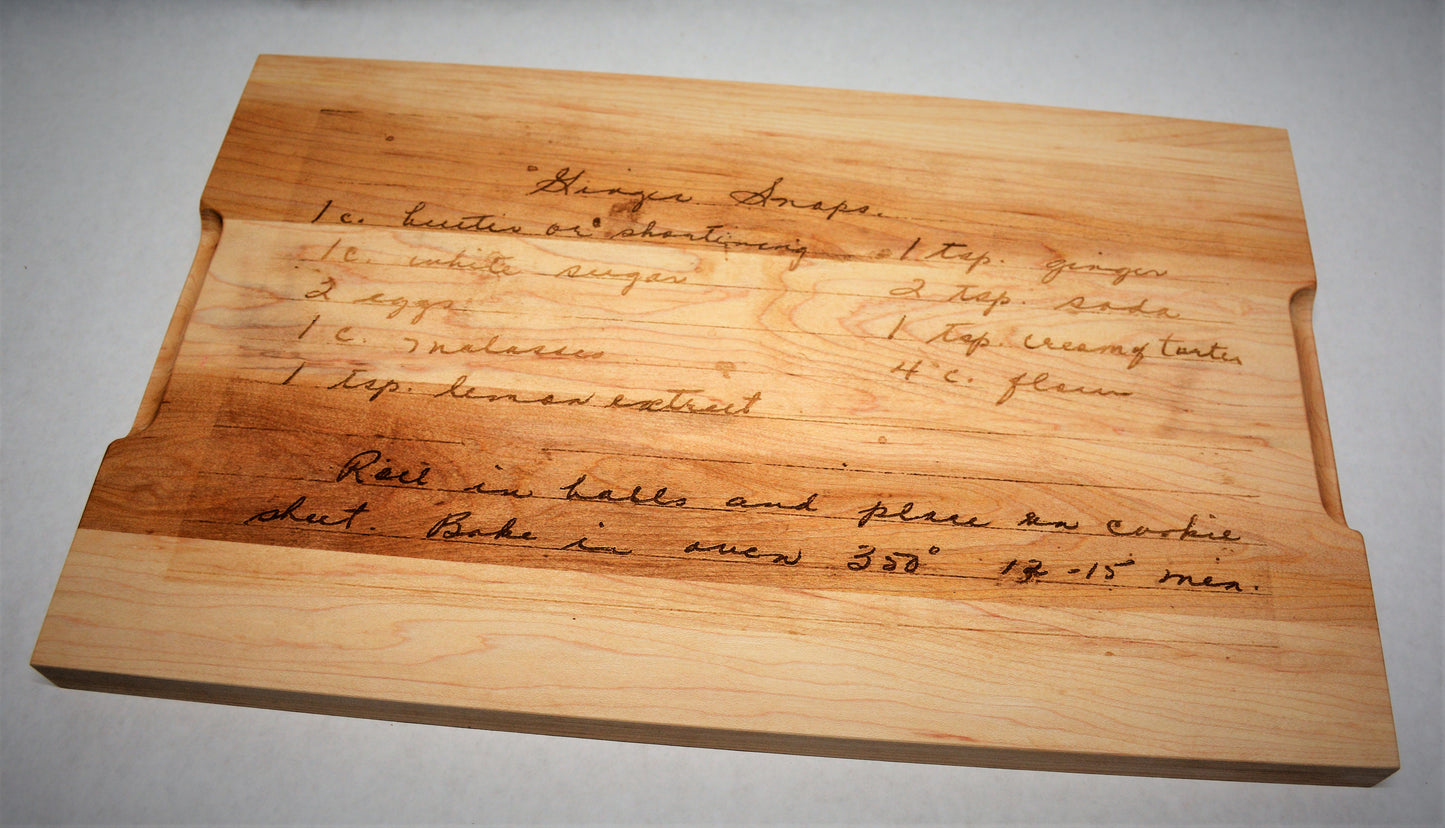 Ginger Snaps.
1 c. butter or shortening
1 c. white sugar
2 eggs
1 c. molasses
1 tsp. lemon extract
1 tsp. ginger
2 tsp. soda
1 tsp. cream of tarter
4 c. flour
Roll in balls and place on cookie
sheet. Bake in oven 350° 12-15 min.